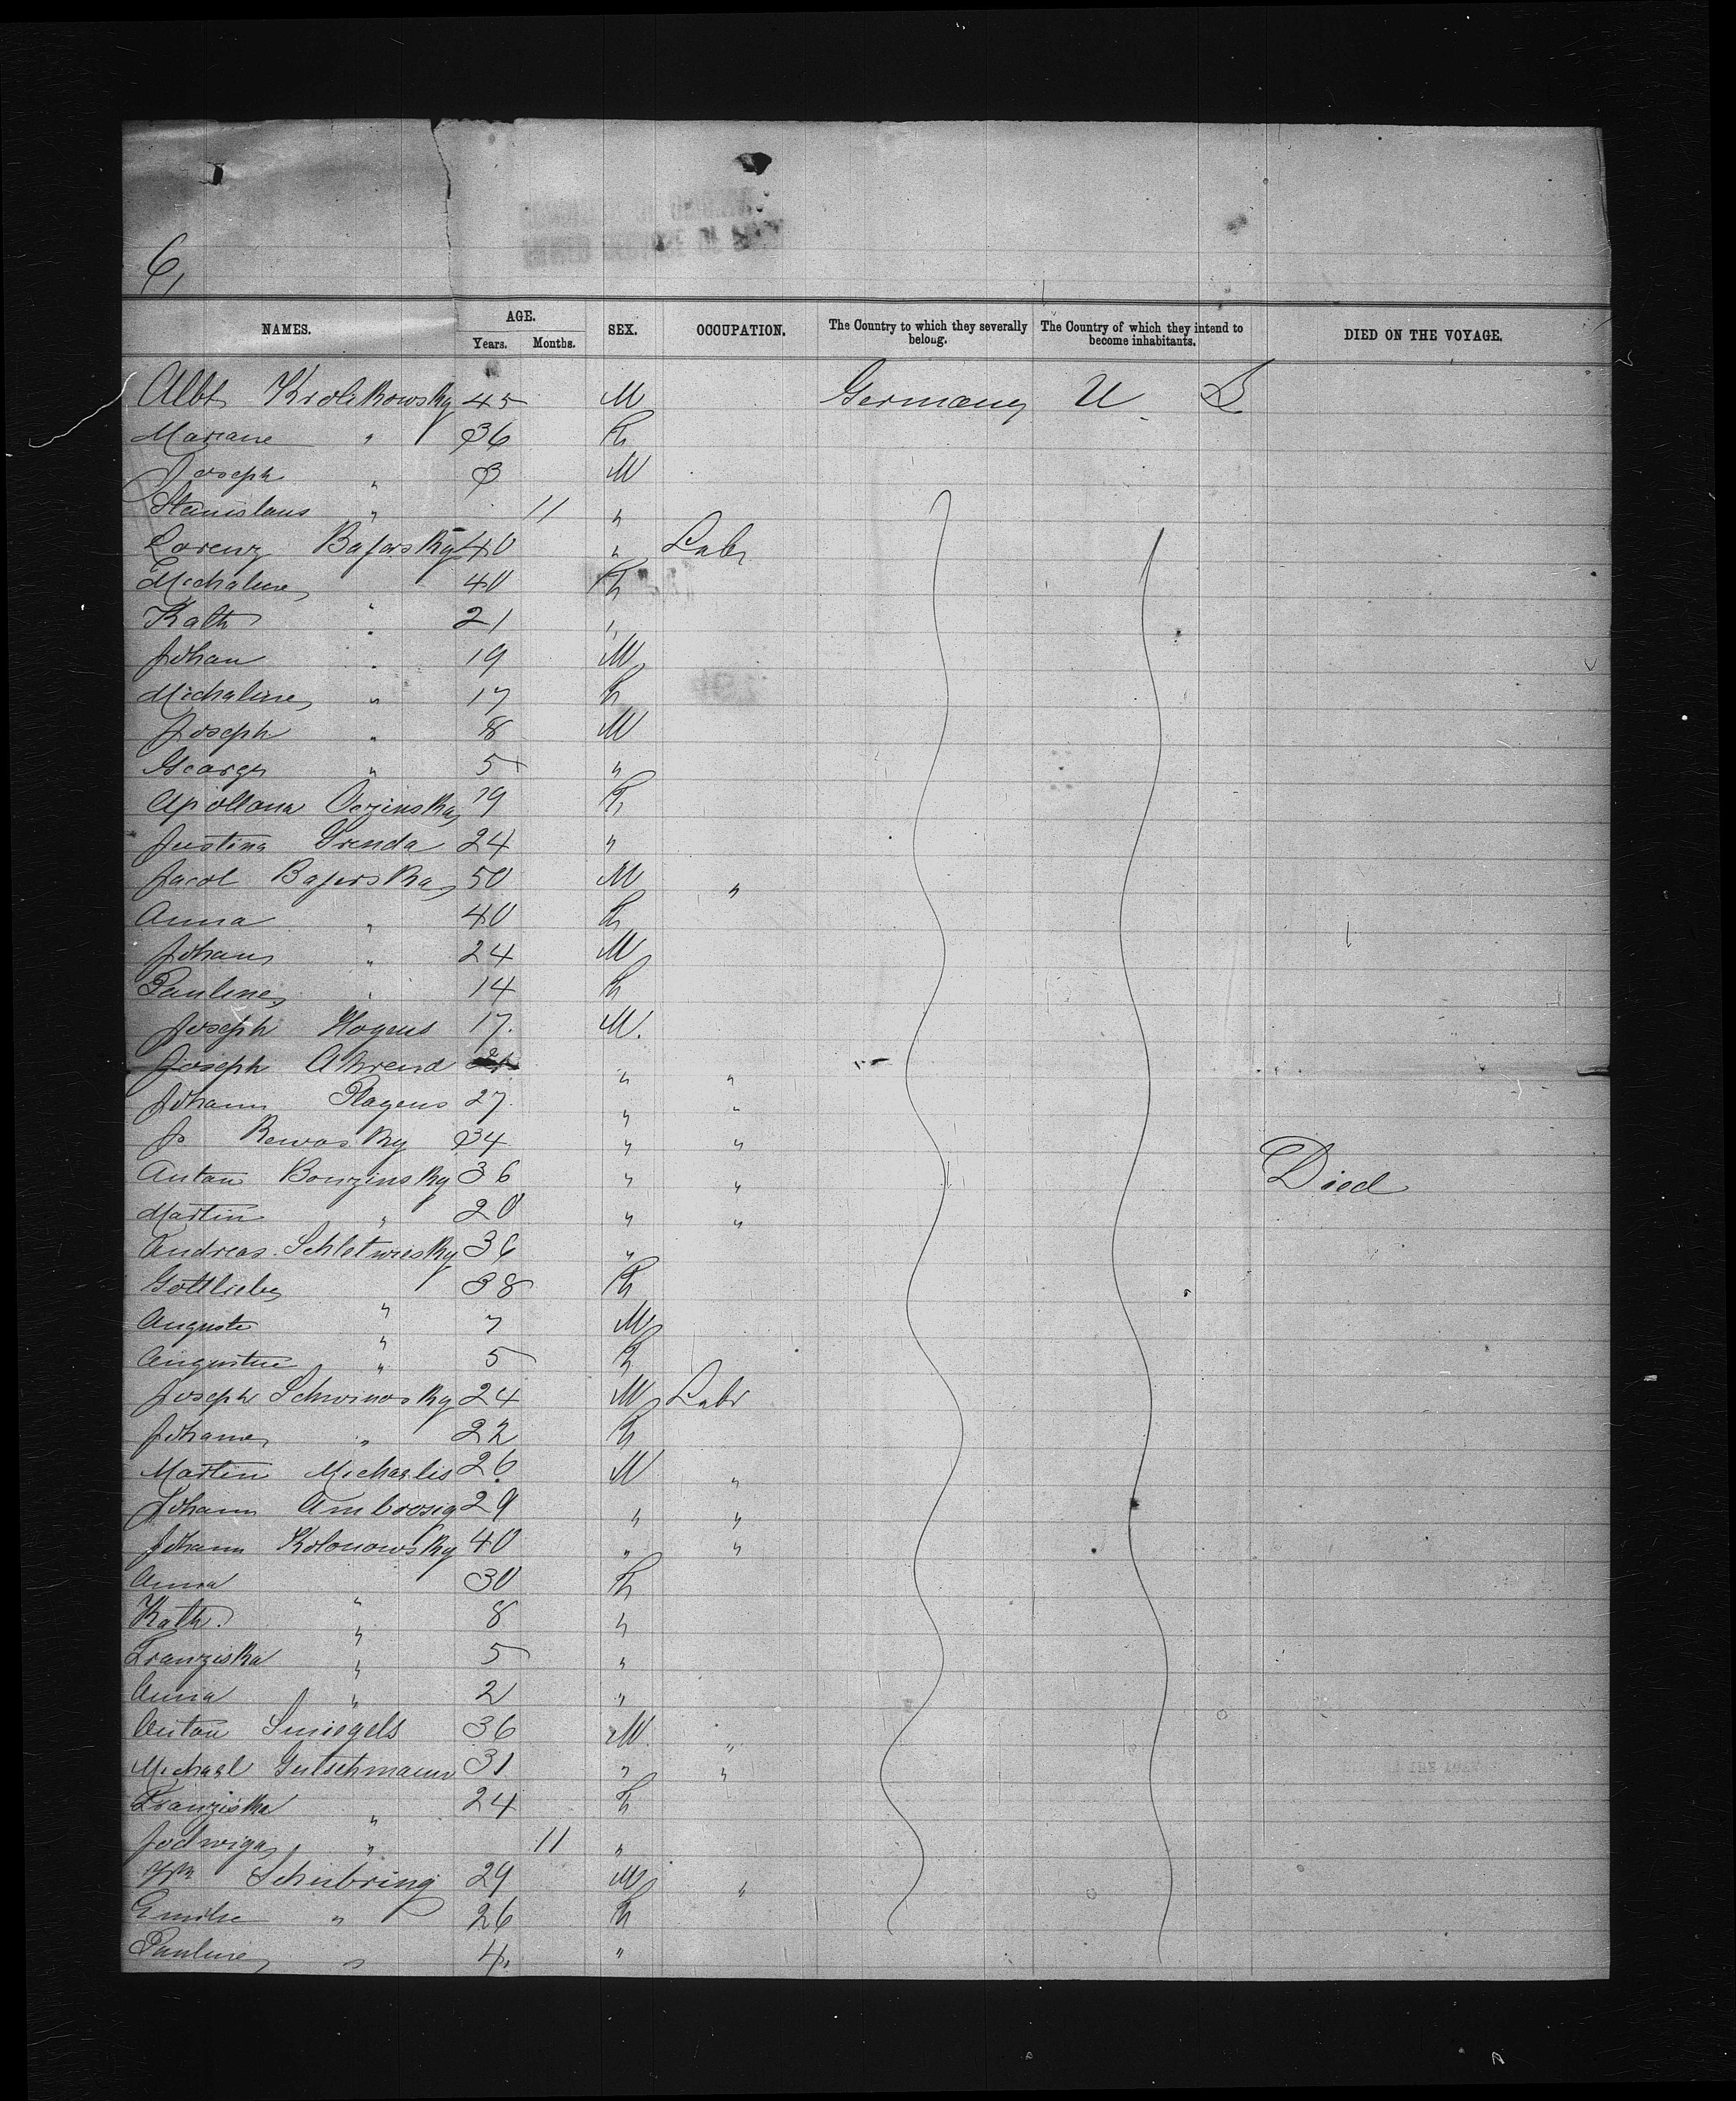 6,
NAMES. AGE. Years. Months. SEX. OCCUPATION. The Country to which they severally belong. The Country of which they intend to become inhabitants. DIED ON THE VOYAGE.
Albt Krolikowsky 45 M Germany U S
Mariane " 36 F
Joseph " 3 M
Stanislaus " 11 "
Lorenz Bajorsky 40 " Labr
Michaline " 40 F
Kath " 21 "
Johan " 19 M
Michaline " 17 F
Joseph " 8 M
George " 5 "
Apollona 19 F
Justina Grenda 24 "
Jacob Bajerska 50 M "
Anna " 40 F
Johann " 24 M
Pauline " 14 F
Joseph 17. M.
Joseph Ahrend " "
Johann Plagens 27. " "
Jo Rewosky 34 " "
Anton 36 " " Died
Martin " 20 " "
Andreas 36 "
Gottliebe " 38 F
Auguste " 7 M
Augustine " 5 F
Joseph Schwinosky 24 M Labr
Johanne " 22 F
Martin Michaelis 26 M "
Johann Ambrosig 29 " "
Johann Kolonowsky 40 " "
Anna " 30 F
Kath. " 8 "
Franziska " 5 "
Anna " 2 "
Anton Smiegels 36 M. "
Michael Gutschmann 31 " "
Franziska " 24 F
Jadwiga " 11 "
Wm Schubring 29 M "
Emilie " 26 F
Pauline " 4. "